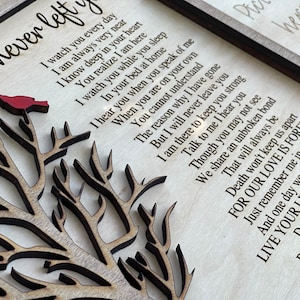 never left y
I watch you every day
I am always very near
I know deep in your heart
You realize I am here
I watch you while you sleep
In your bed at home
I hear you when you speak of me
When you are on your own
You cannot understand
The reason why I have gone
But I will never leave you
I am there to keep you strong
Talk to me I hear you
Though you may not see
We share an unbroken bond
That will always be
Death won't keep us apart
FOR OUR LOVE IS
Just remember me
And one day we
LIVE YOUR
D